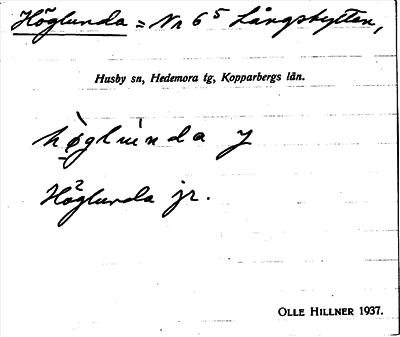 Höglunda = Nr 6⁵ Långshyttan,
Husby sn, Hedemora tg, Kopparbergs län.
hø̀glùnda y
Höglunda jr.
OLLE HILLNER 1937.